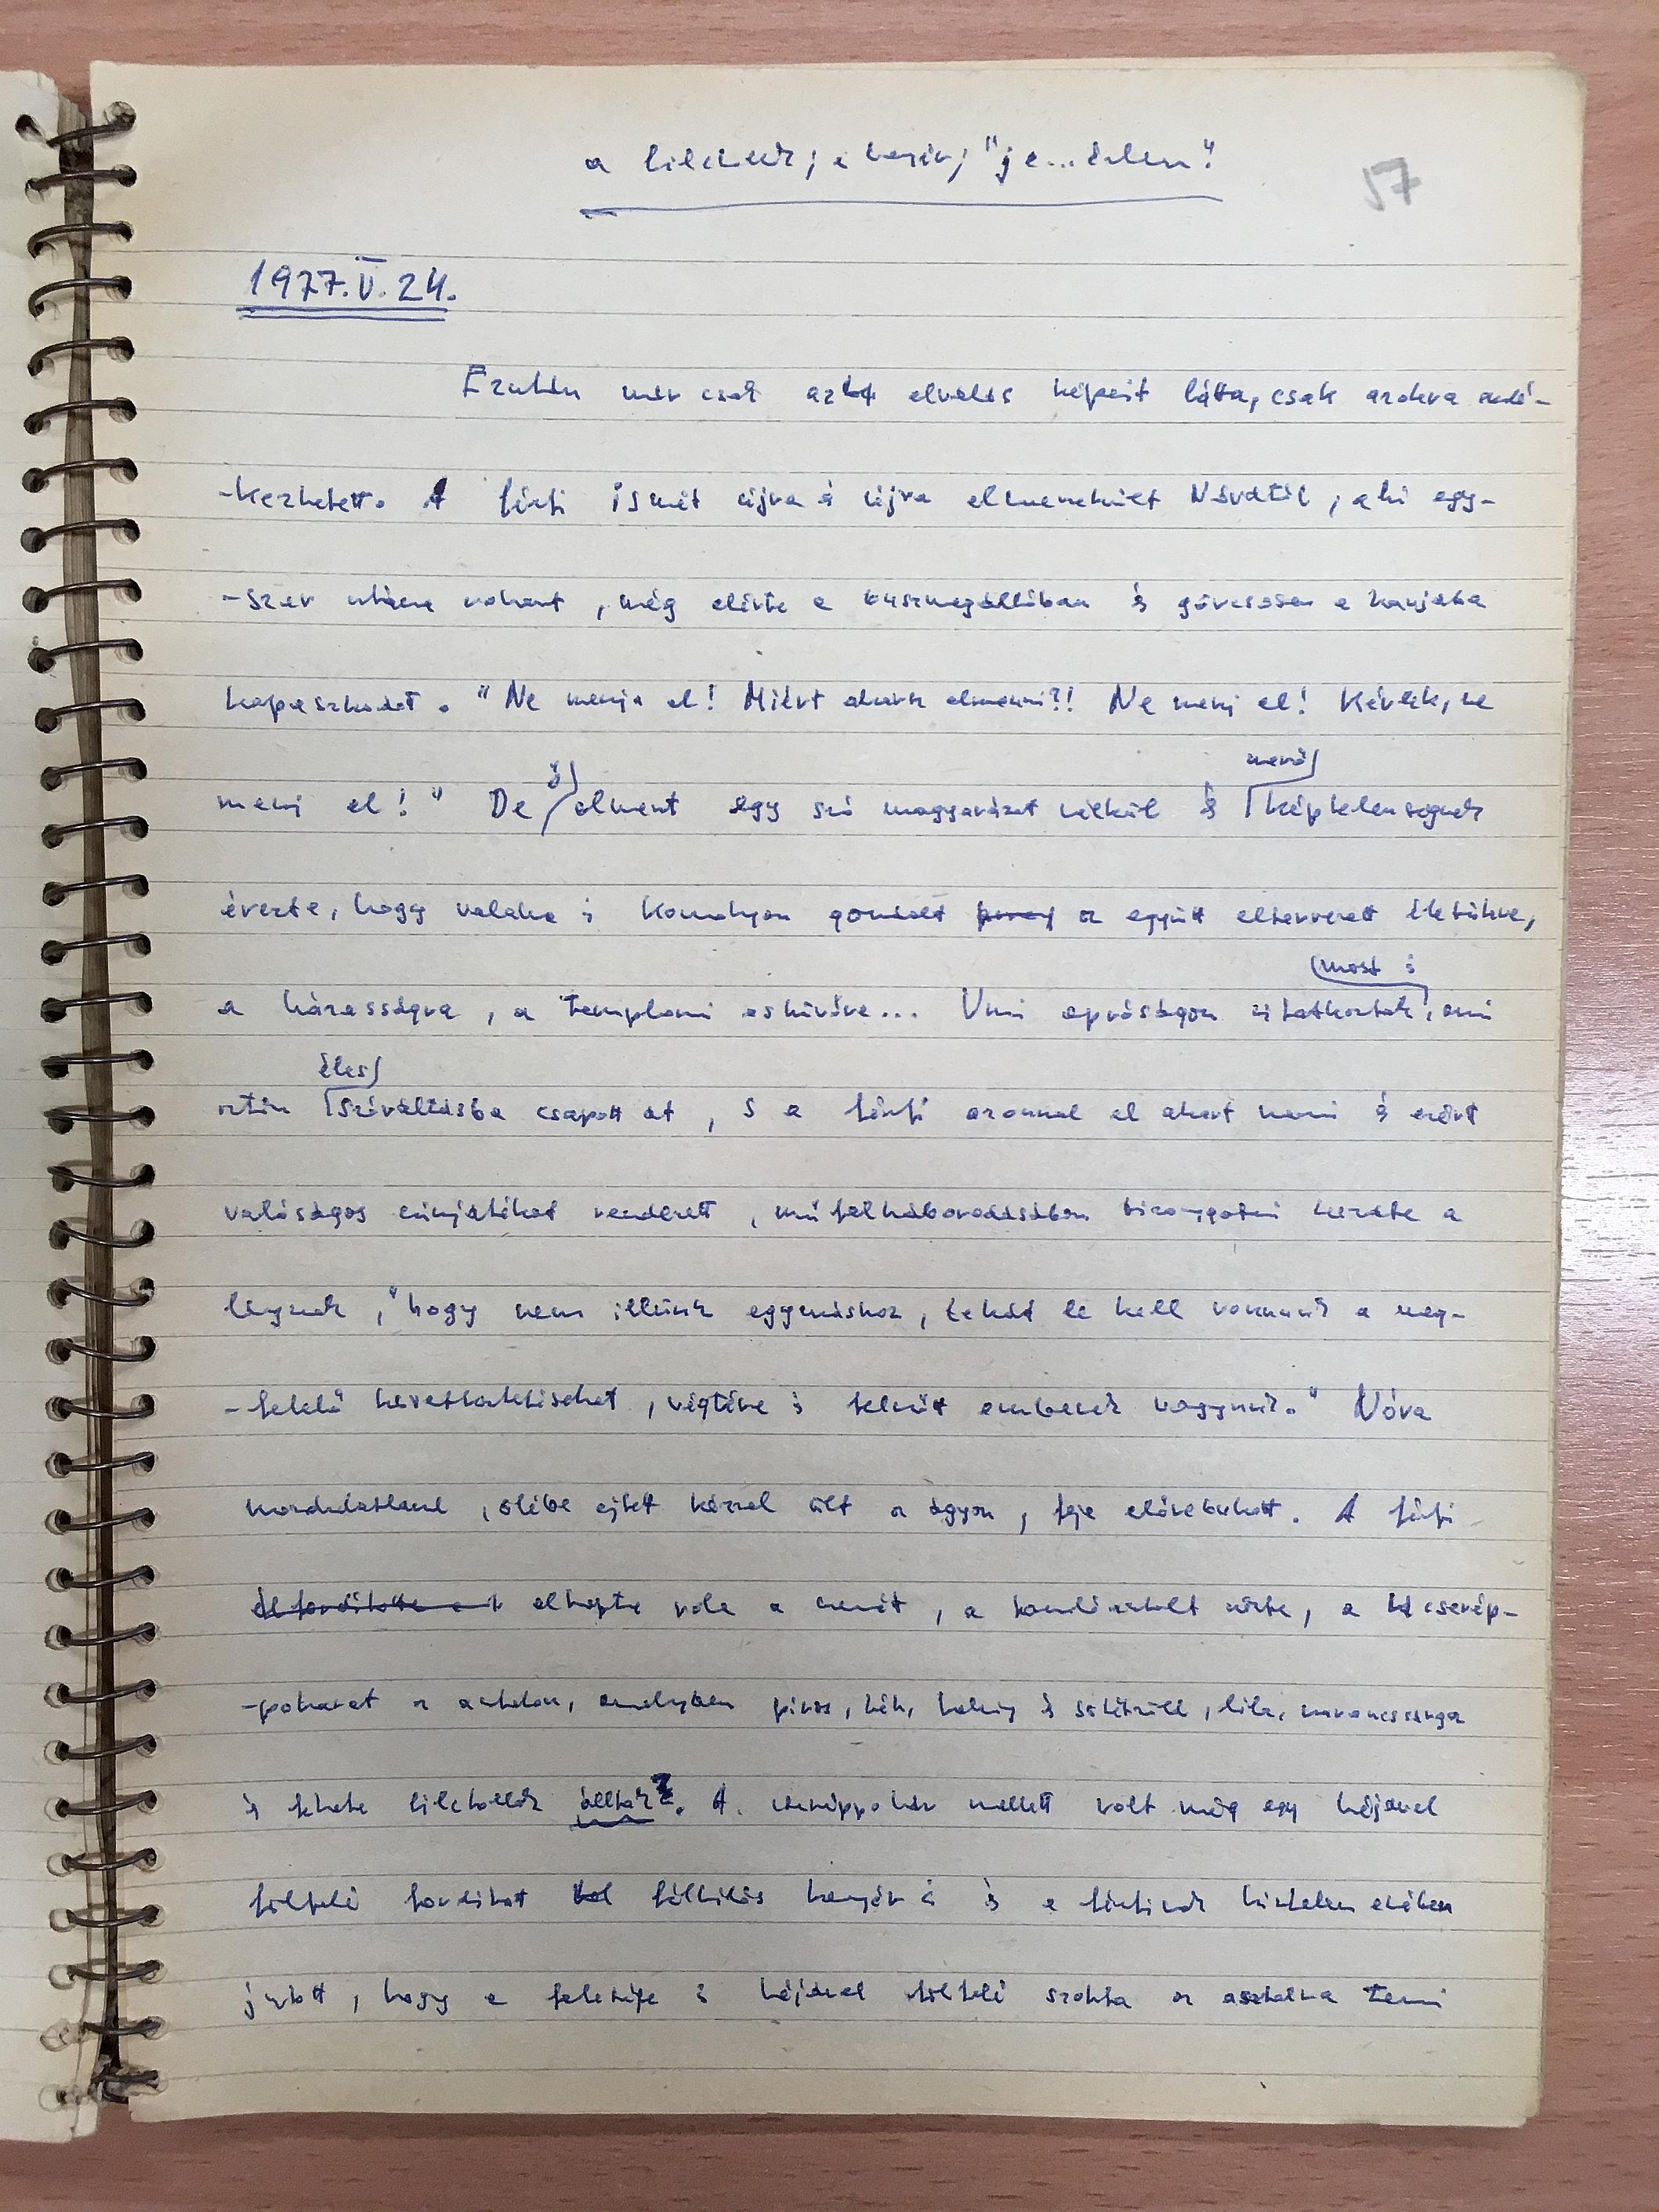 a filctoll; a kosár; "je...telen"
57
1977.V.24.
Ezután már csak az elválás képeit látta, csak azokra emlé-
-kezhetett. A férfi ismét újra és újra elmenekült Nórától, aki egy-
-szer utána rohant, még elérte a buszmegállóban és görcsösen a karjába
kapaszkodott. "Ne menj el! Miért akarsz elmenni?! Ne menj el! Kérlek, ne
ő merő
menj el!" De elment egy szó magyarázat nélkül és képtelenségnek
érezte, hogy valaha is komolyan gondolt az együtt eltervezett életükre,
most is
a házasságra, a templomi esküvőre... Vmi apróságon vitatkoztak, ami
éles
aztán szóváltásba csapott át, s a férfi azonnal el akart menni és ezért
valóságos színjátékot rendezett, mű felháborodásában bizonygatni kezdte a
lánynak, "hogy nem illünk egymáshoz, tehát le kell vonnunk a meg-
-felelő következtetéseket, végtére is felnőtt emberek vagyunk." Nóra
mozdulatlanul, ölébe ejtett kézzel ült az ágyon, feje előrebukott. A férfi
elkapta róla a szemét, a nézte, a cserép-
-poharat az asztalon, amelyben piros, kék, halvány és sötétzöld, lila, narancssárga
és fekete filctollak álltak. A cseréppohár mellett volt még egy héjával
fölfelé fordított félkilós kenyér is és a férfinak hirtelen eszében
jutott, hogy a felesége is héjával fölfelé szokta az asztalra tenni